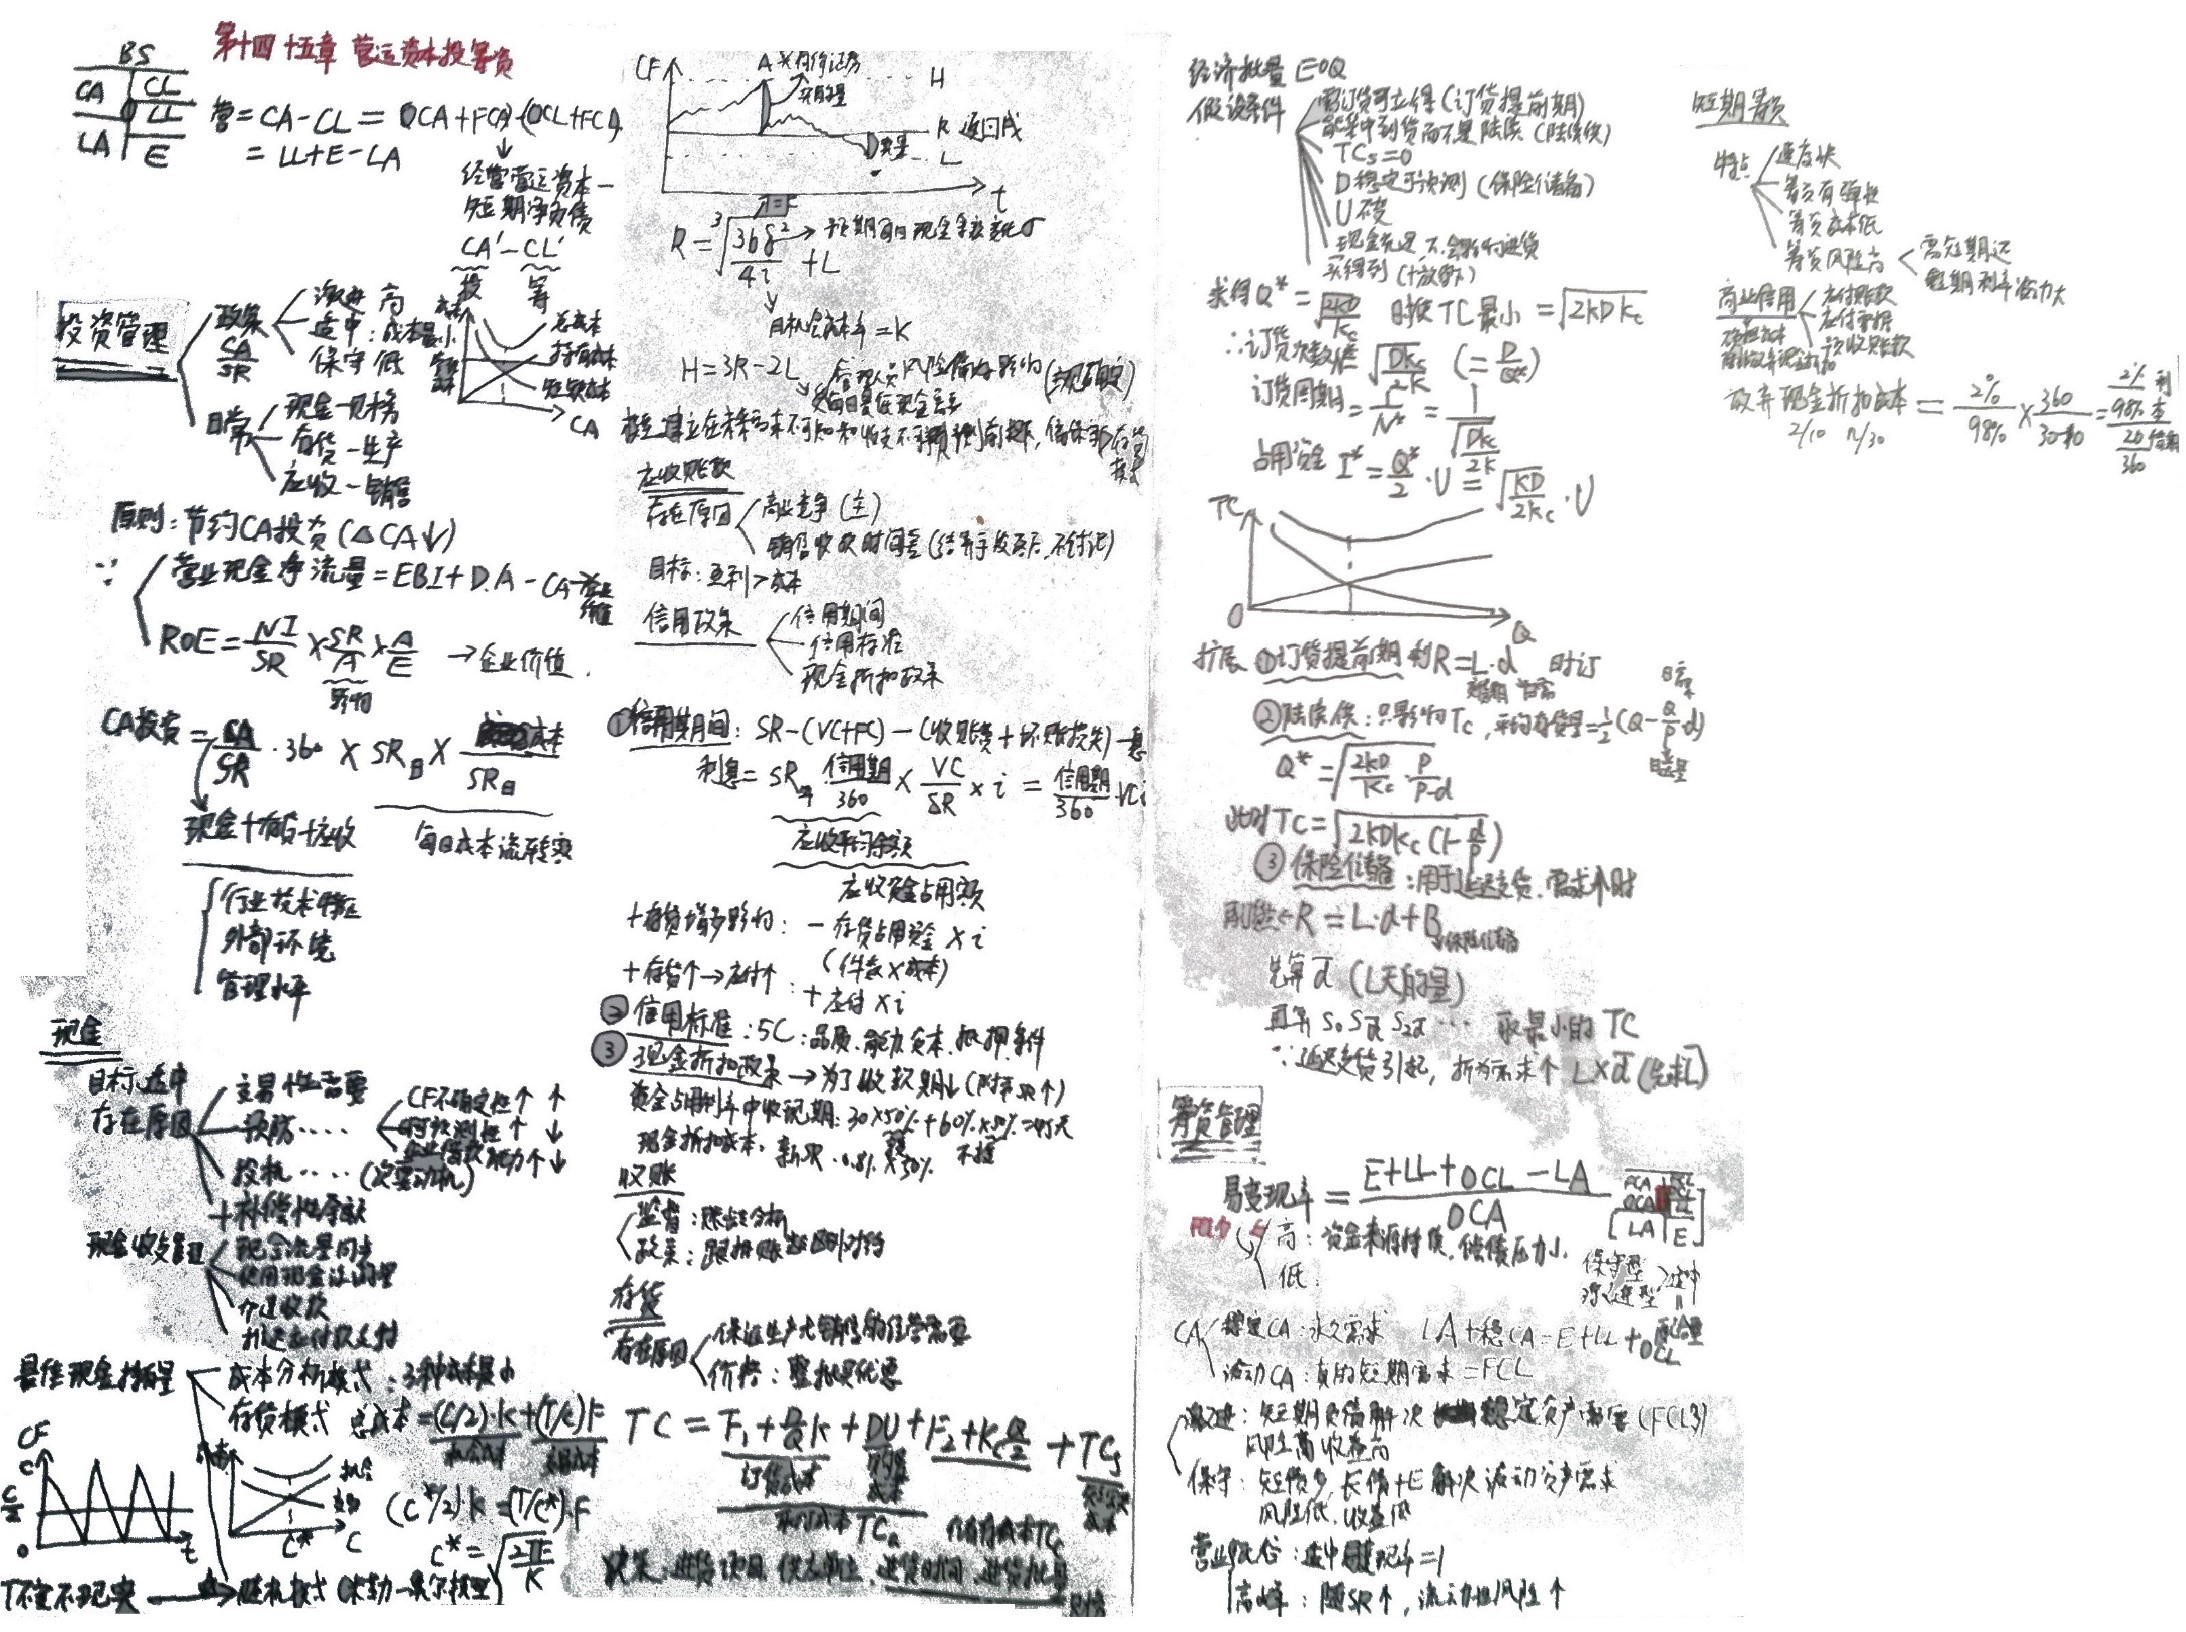 第十四 十五章 营运资本投筹资
BS
CA CL
LL
LA E
营=CA-CL=OCA+FCA-(OCL+FCL)
=LL+E-LA
经营营运资本-
短期净负债
CA'-CL'
投 筹
投资管理
政策 CA/SR
激进 高
适中:成本最小
保守 低
总成本
持有成本
短缺成本
CA
日常
现金-财务
存货-生产
应收-销售
原则:节约CA投资(△CA↓)
∵ 营业现金净流量=EBI+D.A-CA→企业价值
ROE=NI/SR×SR/A×A/E →企业价值.
影响
CA投资=CA/SR·360×SR日×成本/SR日
现金+存货+应收
每日成本流转额
行业技术特征
外部环境
管理水平
现金
目标:适中
存在原因
交易性需要
预防····
投机····(次要动机)
CF不确定性↑ ↑
可预测性↑ ↓
企业借款能力↑ ↓
+补偿性余额
现金收支管理
现金流量同步
使用现金浮游量
加速收款
推迟应付款支付
最佳现金持有量
成本分析模式:3种成本最小
存货模式 总成本=(C/2)·K+(T/C)F
机会成本 交易成本
CF
C
C/2
0 t
机会
交易
C* C
(C*/2)·K=(T/C*)·F
C*=√(2TF/K)
T不定不现实→随机模式(米勒-奥尔模型)
CF
A×有价证券
买的量
H
R 返回线
L
t
R=∛(3bδ²/4i)+L
→预期每日现金余额变化σ
日机会成本率=K
H=3R-2L
管理人员风险倾向影响(主观确定)
每日最低现金需要
模型建立在未来需求不可知和收支不可预测前提下,
应收账款
存在原因
商业竞争(主)
销售收款时间差(结算手段落后,不讨论)
目标:盈利>成本
信用政策
信用期间
信用标准
现金折扣政策
①信用期间:SR-(VC+FC)-(收账费+坏账损失)-息
利息=SR年·信用期/360×VC/SR×i=信用期/360·VCi
应收平均余额
应收资金占用额
+存货增多影响:-存货占用资金×i
(件数×成本)
+存货↑→应付↑:+应付×i
②信用标准:5C:品质.能力.资本.抵押.条件
③现金折扣政策→为了收款期↓(附带SR↑)
资金占用利率中收现期:30×50%+60%×50%=45天
现金折扣成本.
收账
监督:账龄分析
存货
存在原因
保证生产或销售的经营需要
价格:整批买优惠
TC=F₁+D/Q K+DU+F₂+Kc Q/2+TCs
订货成本 购置成本
取得成本TCa 储存成本TCc
缺货成本
决策:进货项目.供应单位.进货时间.进货批量
财务
经济批量 EOQ
假设条件
需订货可立得(订货提前期)
能集中到货而不是陆续(陆续供)
TCs=0
D稳定可预测(保险储备)
U不变
现金充足,不会影响进货
买得到(↑放弃)
求得Q*=√(2KD/Kc) 时使TC最小=√(2KDKc)
∴订货次数N=√(DKc/2K) (=D/Q*)
订货周期=1/N*=1/√(DKc/2K)
占用资金 I*=Q*/2·U=√(KD/2Kc)·U
TC
0 Q
扩展 ①订货提前期 到R=L·d 时订
交货期 日需
②陆续供:只影响Tc,平均存货量=½(Q-Q/P·d)
日需
日送量
Q*=√(2KD/Kc·P/P-d)
此时TC=√(2KDKc(1-d/P))
③保险储备:用于延迟交货.需求↑时
R=L·d+B
保险储备
先算d̄(L天的量)
再算 S₀ Sd̄ S2d̄ ··· 取最小的TC
∵延迟交货引起,折为需求↑ L×d̄(先求L̄)
筹资管理
易变现率=(E+LL+OCL-LA)/OCA
FCA FCL
OCA OCL
LA E
高:资金来源持续,偿债压力小.
低:
保守型
激进型
适中
CA
稳定CA:永久需求 LA+稳CA=E+LL+OCL
波动CA:真的短期需求=FCL
激进:短期负债解决稳定资产需要(FCL多)
风险高收益高
保守:短债少,长债+E解决波动资产需求
风险低.收益低
营业低谷:适中易变现率=1
高峰:随SR↑,流动性风险↑
短期筹资
特点
速度快
筹资有弹性
筹资成本低
筹资风险高
需短期还
短期利率波动大
商业信用
应付账款
应付票据
预收账款
放弃现金折扣成本=2%/98%×360/30-10=2%利/98%本/20信期/360
2/10 n/30